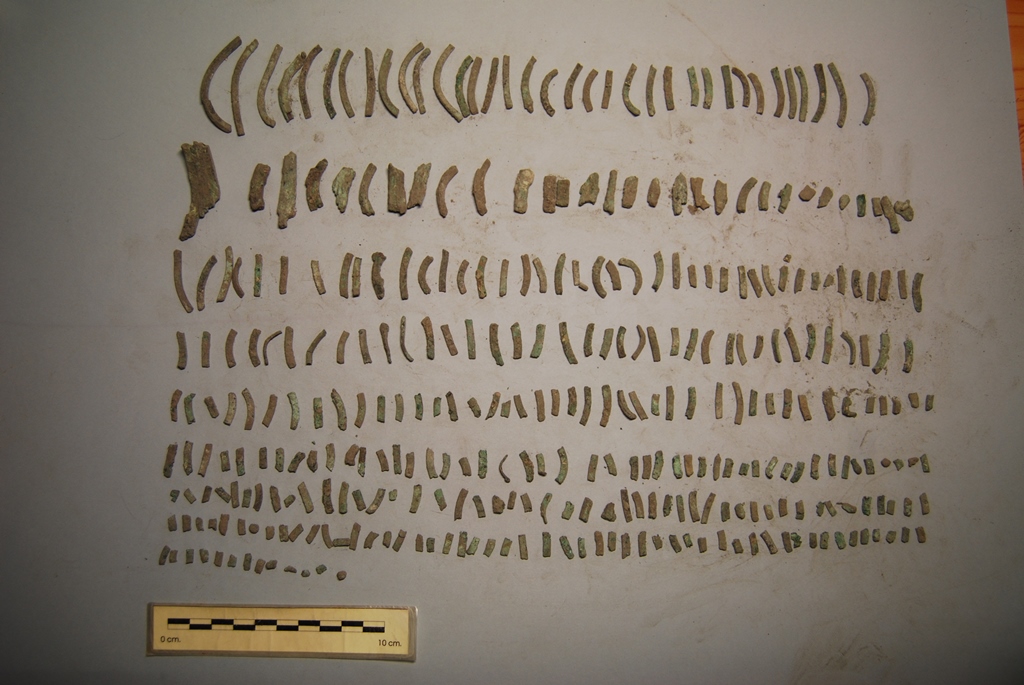 0 cm. 10 cm.